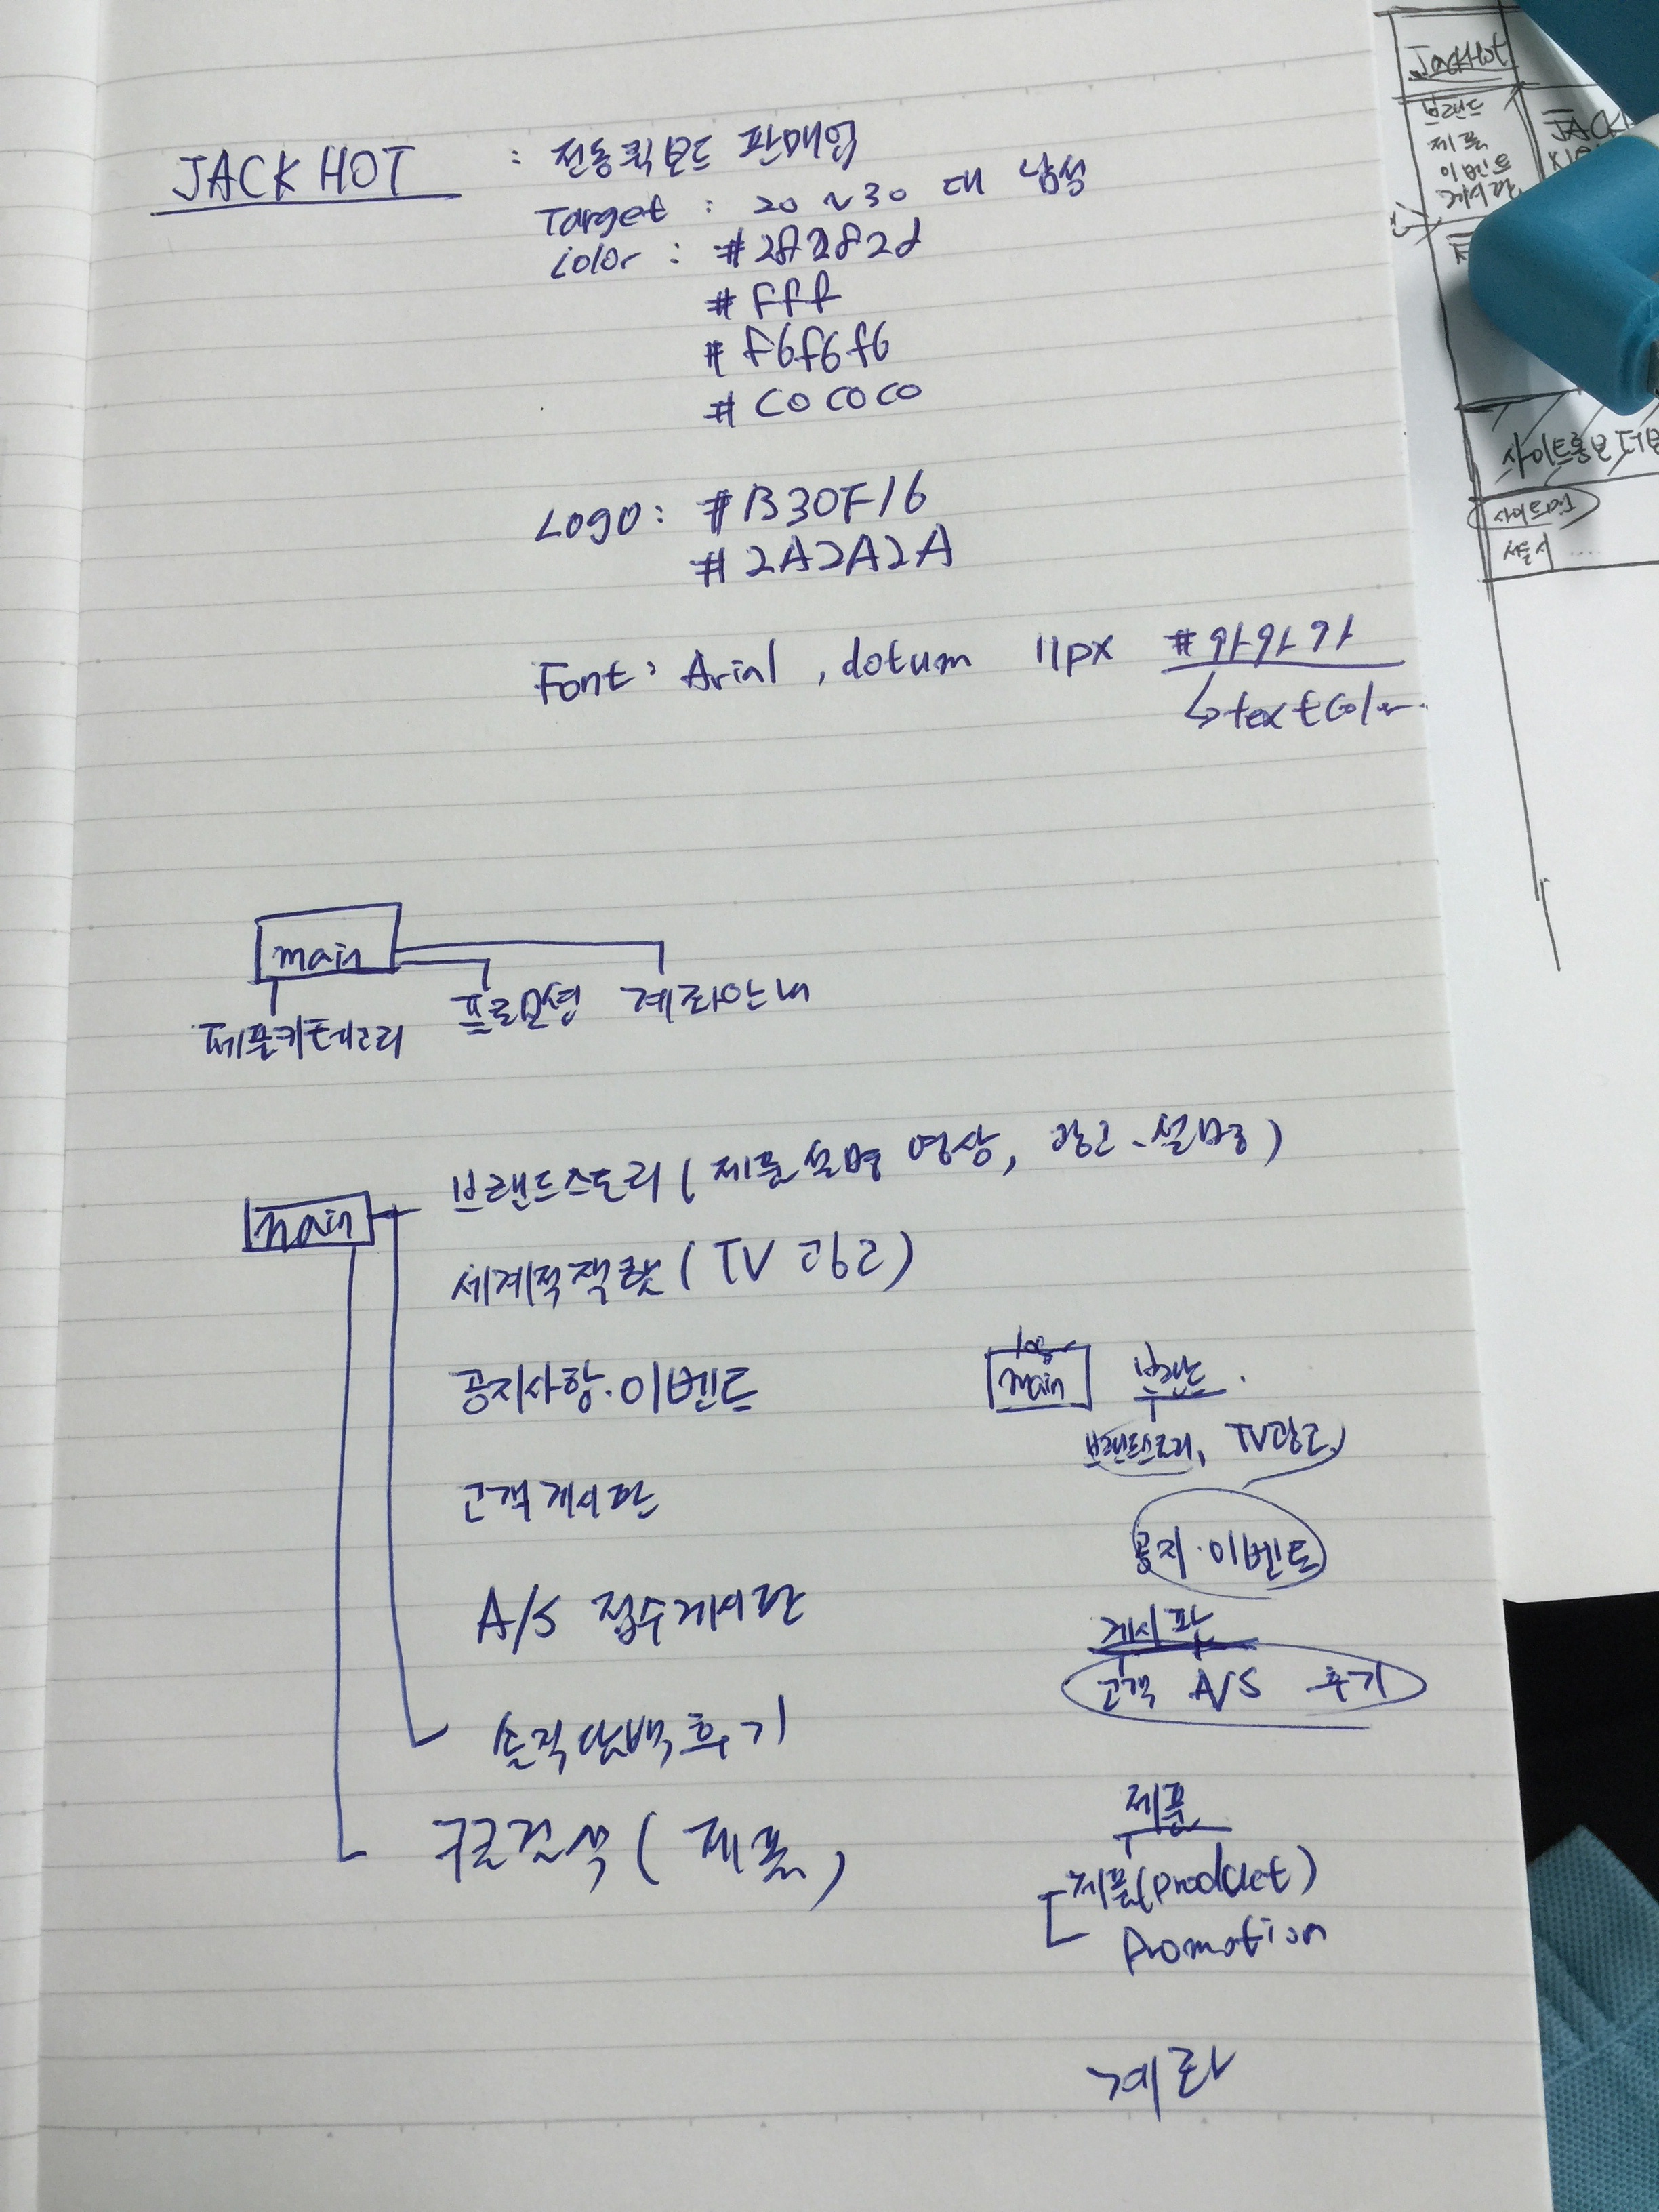 JACK HOT : 전동퀵보드 판매업
Target : 20 ~ 30 대 남성
Color : #282828
#fff
#f6f6f6
#C0C0C0
Logo : #B30F16
#2A2A2A
Font : Arial, dotum 11px #9a9a9a
↳ textColor
main
제품카테고리 프로모션 계좌안내
main
브랜드스토리 (제품설명 영상, 광고, 설명)
세계적잭핫 (TV 광고)
공지사항·이벤트
고객게시판
A/S 접수게시판
솔직담백후기
구글검색 (제품)
logo
main 브랜드
브랜드스토리, TV광고,
공지·이벤트
게시판
고객 A/S 후기
제품
제품(product)
Promotion
계좌
JackHot
브랜드
제품
이벤트
게시판
JACK
사이트홍보
사이트명